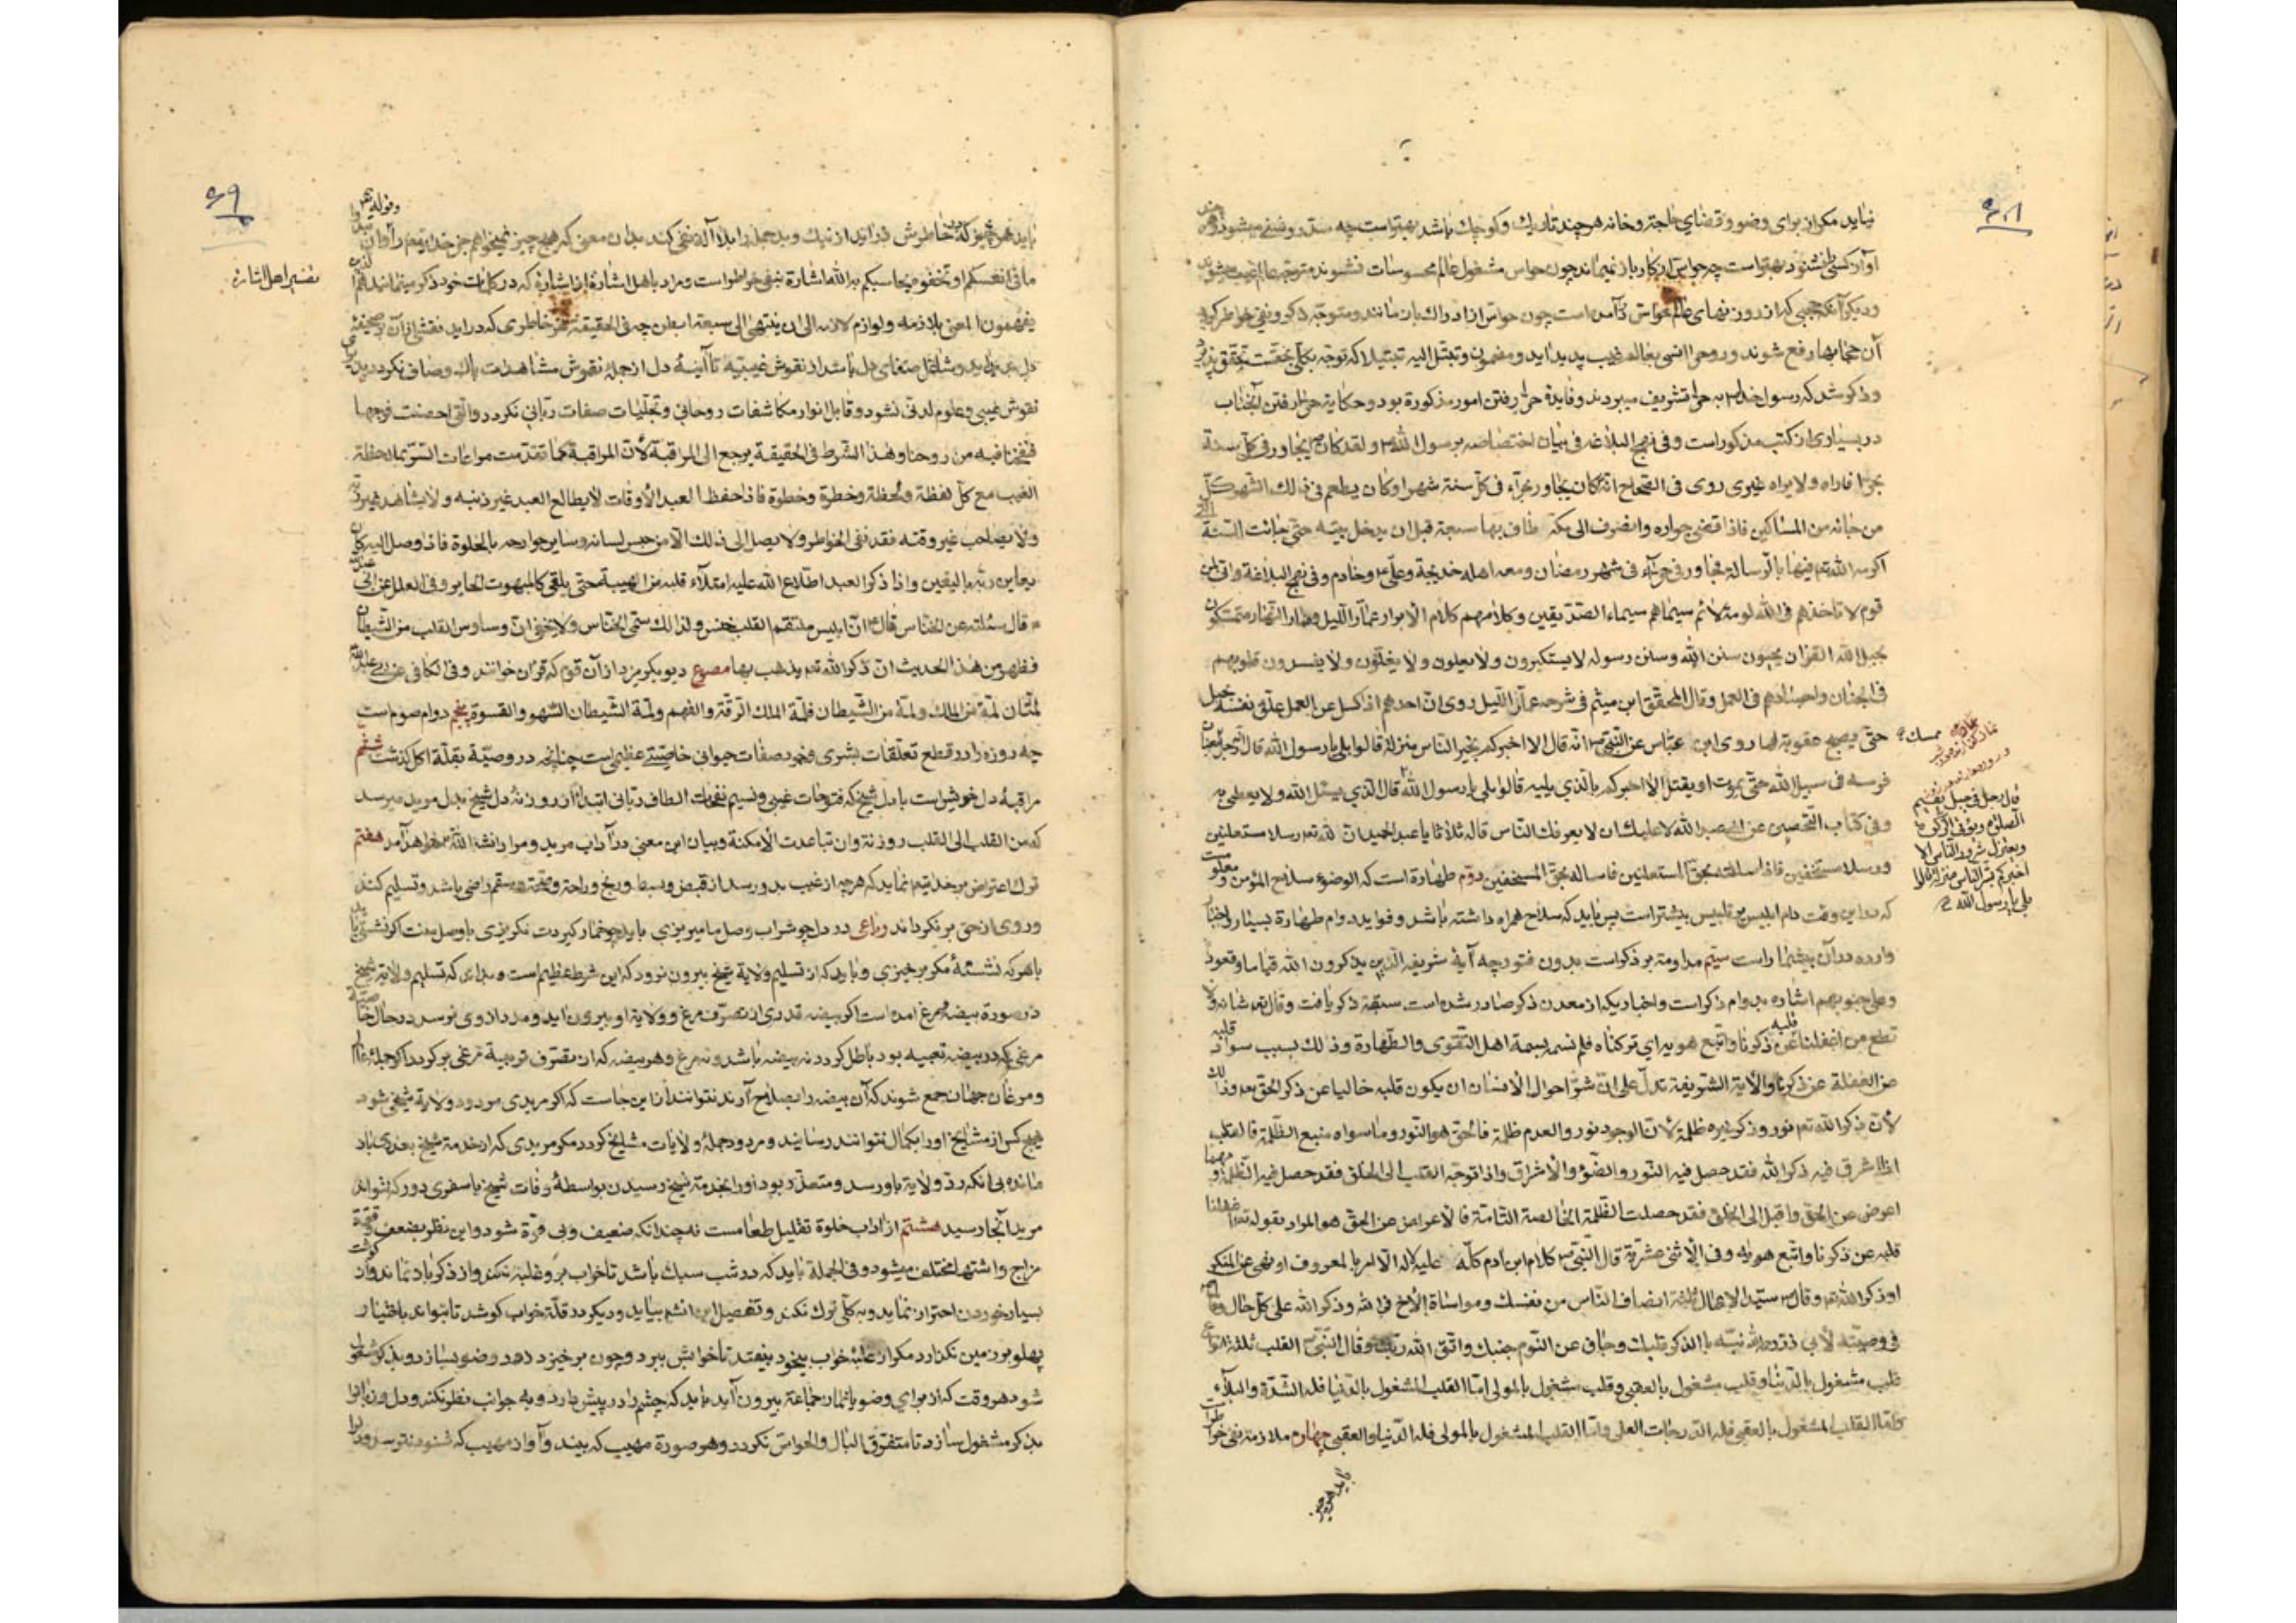 نیاید مکر از برای وضو و قضای حاجة و خانه هر چند تاریك و کوچك باشد بهتر است چه
آواز کسی نشنود بهتر است چه حواس از کار باز نمیماند چون حواس مشغول عالم محسوسات نشوند متوجه عالم غیب میشوند
و دیکر آنکه حجبی که از روزنهای حواس درآمده است چون حواس از ادراك باز مانند و متوجه ذکر و نفی خواطر کردد
آن حجابها رفع شوند و روح را انسی بعالم غیب پدید اید و مضمون و تبتل الیه تبتیلا که توجه بکلی بحقست تحقق پذیرد
و ذکر شد که رسول خدا ص به حرا تشریف میبردند و فایده حرا رفتن امور مذکورة بود و حکایة حرا رفتن آنجناب
در بسیاری از کتب مذکور است و فی نهج البلاغه فی بیان اختصاصه برسول الله ص و لقد کان یجاور فی کل سنة
بحرا فاراه ولا یراه غیری روی فی الصحاح انه کان یجاور بحرآء فی کل سنة شهرا و کان یطعم فی ذلك الشهر کل
من جائه من المساکین فاذا قضی جواره وانصرف الی مکة طاف بها سبعة قبل ان یدخل بیته حتی جائت السنة التی
اکرمه الله تعه فیها بالرسالة فجاور فی حرآء فی شهر رمضان و معه اهله خدیجة و علی ع و خادم و فی نهج البلاغة و انی لمن
قوم لا تاخذهم فی الله لومة لائم سیماهم سیماء الصدیقین و کلامهم کلام الابرار عمار اللیل و منار النهار متمسکون
بحبل الله القرآن یحیون سنن الله و سنن رسوله لا یستکبرون ولا یعلون ولا یغلون ولا یفسدون قلوبهم
فی الجنان و اجسادهم فی العمل و قال المحقق ابن میثم فی شرحه عمار اللیل روی ان احدهم اذا کسل عن العمل علق نفسه بحبل
حتی یصبح عقوبة لها روی ابن عباس عن النبی ص انه قال الا اخبرکم بخیر الناس منزلة قالوا بلی یا رسول الله قال رجل
ممسك
فرسه فی سبیل الله حتی یموت او یقتل الا اخبرکم بالذی یلیه قالوا بلی یا رسول الله قال الذی یسئل الله ولا یعطی به
قال رجل فی جبل یقیم
الصلوة و یؤتی الزکوة
و یعتزل شرور الناس الا
اخبرکم بشر الناس منزلة قالوا
بلی یا رسول الله ص
و فی کتاب التحصین عن ابی عبد الله لا علیك ان لا یعرفك الناس قاله ثلاثا یا عبد الحمید ان لله تعه رسلا مستعلنین
و رسلا مستخفین فاذا سالته بحق المستعلنین فاساله بحق المستخفین دوم طهارة است که الوضوء سلاح المؤمن و معلوم
که در این وقت دام ابلیس پر تلبیس بیشتر است پس باید که سلاح همراه داشته باشد و فواید دوام طهارة بسیار و اخبار
وارده در آن بیشمار است سیم مداومة بر ذکر است بدون فتور چه آیة شریفه الذین یذکرون الله قیاما و قعودا
و علی جنوبهم اشاره بدوام ذکر است و اخباریکه از معدن ذکر صادر شده است سبقة ذکر یافت و قال تعه شانه و لا
تطع من اغفلنا قلبه عن ذکرنا و اتبع هویه ای ترکناه فلم نسمه بسمة اهل التقوی و الطهارة و ذلك بسبب سواد قلبه
من الغفلة عن ذکرنا و الآیة الشریفة تدل علی ان شر احوال الانسان ان یکون قلبه خالیا عن ذکر الحق تعه و ذلك
لان ذکر الله تعه نور و ذکر غیره ظلمة لان الوجود نور و العدم ظلمة فالحق هو النور و ما سواه منبع الظلمة فالقلب
اذا اشرق فیه ذکر الله فقد حصل فیه النور و الضوء و الاشراق و اذا توجه القلب الی الخلق فقد حصل فیه الظلمة و مهما
اعرض عن الحق و اقبل الی الخلق فقد حصلت الظلمة الخالصة التامة فالاعراض عن الحق هو المراد بقوله تعه اغفلنا
قلبه عن ذکرنا و اتبع هویه و فی الاثنی عشریة قال النبی ص کلام ابن آدم کله علیه لا له الا امر بالمعروف او نهی عن المنکر
او ذکر الله تعه و قال ص سید الاعمال ثلثة انصاف الناس من نفسك و مواساة الاخ فی الله و ذکر الله علی کل حال
فی وصیته لابی ذر نبه بالذکر قلبك و جاف عن النوم جنبك و اتق الله ربك و قال النبی ص القلب ثلثة انواع
قلب مشغول بالدنیا و قلب مشغول بالعقبی و قلب مشغول بالمولی اما القلب المشغول بالدنیا فله الشدة و البلآء
و اما القلب المشغول بالعقبی فله الدرجات العلی و اما القلب المشغول بالمولی فله الدنیا و العقبی چهارم ملازمة نفی خواطر
باید هر چیز
۶۹
و قوله تعه
باید هر چیز که در خاطرش در آید از نیك و بد جمله را بلا اله نفی کند بدان معنی که هیچ چیز نمیخواهم جز خدایتعه
ما فی انفسکم او تخفوه یحاسبکم به الله اشارة بنفی خواطر است و مراد باهل اشارة
تفسیر اهل اشارة
یفهمون المعنی بلازمه و لوازم لازمه الی ان ینتهی الی سبعة ابطن چه فی الحقیقة هر خاطری که دراید نقشی از آن بر صحیفه
نقوش غیبی و علوم لدنی نشود و قابل انوار مکاشفات روحانی و تجلیات صفات ربانی نکردد و التی احصنت فرجها
فنفخنا فیه من روحنا و هذا الشرط فی الحقیقة یرجع الی المراقبة لان المراقبة کما تقدمت مراعات السر بملاحظة
الغیب مع کل لفظة و لحظة و خطرة و خطوة فاذا حفظ العبد الاوقات لا یطالع العبد غیر ذنبه ولا یشاهد غیر ربه
ولا یصاحب غیر وقته فقد نفی الخواطر ولا یصل الی ذلك الا من حبس لسانه و سایر جوارحه بالخلوة فاذا وصل الیه کان
یعاین ربه بالیقین و اذا ذکر العبد اطلاع الله علیه امتلآء قلبه من الهیبة حتی یلقی کالمبهوت الحایر و فی العلل عن ابی عبد الله
قال سئلته عن الخناس قال ان ابلیس ملتقم القلب خنس و لذلك سمی الخناس ولا یخفی ان وساوس القلب من الشیطان
فظهر من هذا الحدیث ان ذکر الله تعه یذهب بها مصرع دیو بکریزد از آن قوم که قران خوانند و فی الکافی عن ابی عبد الله
لمتان لمة من الملك و لمة من الشیطان فلمة الملك الرقة و الفهم و لمة الشیطان السهو و القسوة پنجم دوام صوم است
چه روزه را در قطع تعلقات بشری و خمود صفات حیوانی خاصیتی عظیم است چنانچه در وصیة بقلة اکل کذشت ششم
مراقبۀ دل خویش است با دل شیخ که فتوحات غیبی و نسیم نفحات الطاف ربانی ابتدا از روزنۀ دل شیخ بدل مرید میرسد
که من القلب الی القلب روزنة و ان تباعدت الامکنة و بیان این معنی در آداب مرید و مراد انشا الله تعه خواهد آمد هفتم
ترك اعتراض بر خدایتعه نماید که هر چه از غیب بدو رسد از قبض و بسط و رنج و راحة و صحة و سقم راضی باشد و تسلیم کند
و روی از حق بر نکرداند رباعی در دل چو شراب وصل ما میریزی باید چو خمار کیردت نکریزی
با هر که نشستۀ مکر برخیزی و باید که از تسلیم ولایة شیخ بیرون نرود که این شرط عظیم است و بدان که تسلیم ولایة شیخ
در صورة بیضه مرغ آمده است اکر بیضه قدری از تصرف مرغ و ولایة او بیرون اید و مدد او وی نرسد در حال
مرغی که در بیضه تعبیه بود باطل کردد نه بیضه باشد و نه مرغ و هر بیضه که از تصرف تربیة مرغی برکردد اکر جملۀ عالم
و مرغان جهان جمع شوند که آن بیضه را بصلاح آرند نتوانند از این جاست که اکر مریدی مردود ولایة شیخی شود
هیچ کس از مشایخ او را بکمال نتوانند رسانید و مردود جملۀ ولایات مشایخ کردد مکر مریدی که از خدمة شیخ بعذری باز
مانده بی آنکه رد ولایة باو رسد و متعذر بود او را بخدمة شیخ رسیدن بواسطۀ وفات شیخ یا سفری دور که نتواند
مرید آنجا رسید هشتم از آداب خلوة تقلیل طعامست نه چندانکه ضعیف و بی قوة شود و این نظر بضعف و قوة
مزاج و اشتها مختلف میشود و فی الجملة باید که در شب سبك باشد تا خواب برو غلبه نکند و از ذکر باز نماند و از کوشت
بسیار خوردن احتراز نماید و به کلی ترك نکند و تفصیل این انشه بیاید و دیکر در قلة خواب کوشد تا بتواند باختیار
پهلو بر زمین نکذارد مکر از غلبۀ خواب بیخود بیفتد تا خوابش ببرد و چون برخیزد دهد وضو بسازد و بذکر مشغول
شود هر وقت که از برای وضو یا نماز جماعة بیرون آید باید که چشم را در پیش دارد و به جوانب نظر نکند و دل و زبان را
بذکر مشغول سازد تا متفرق البال و الحواس نکردد و هر صورة مهیب که بیند و آواز مهیب که شنود نترسد